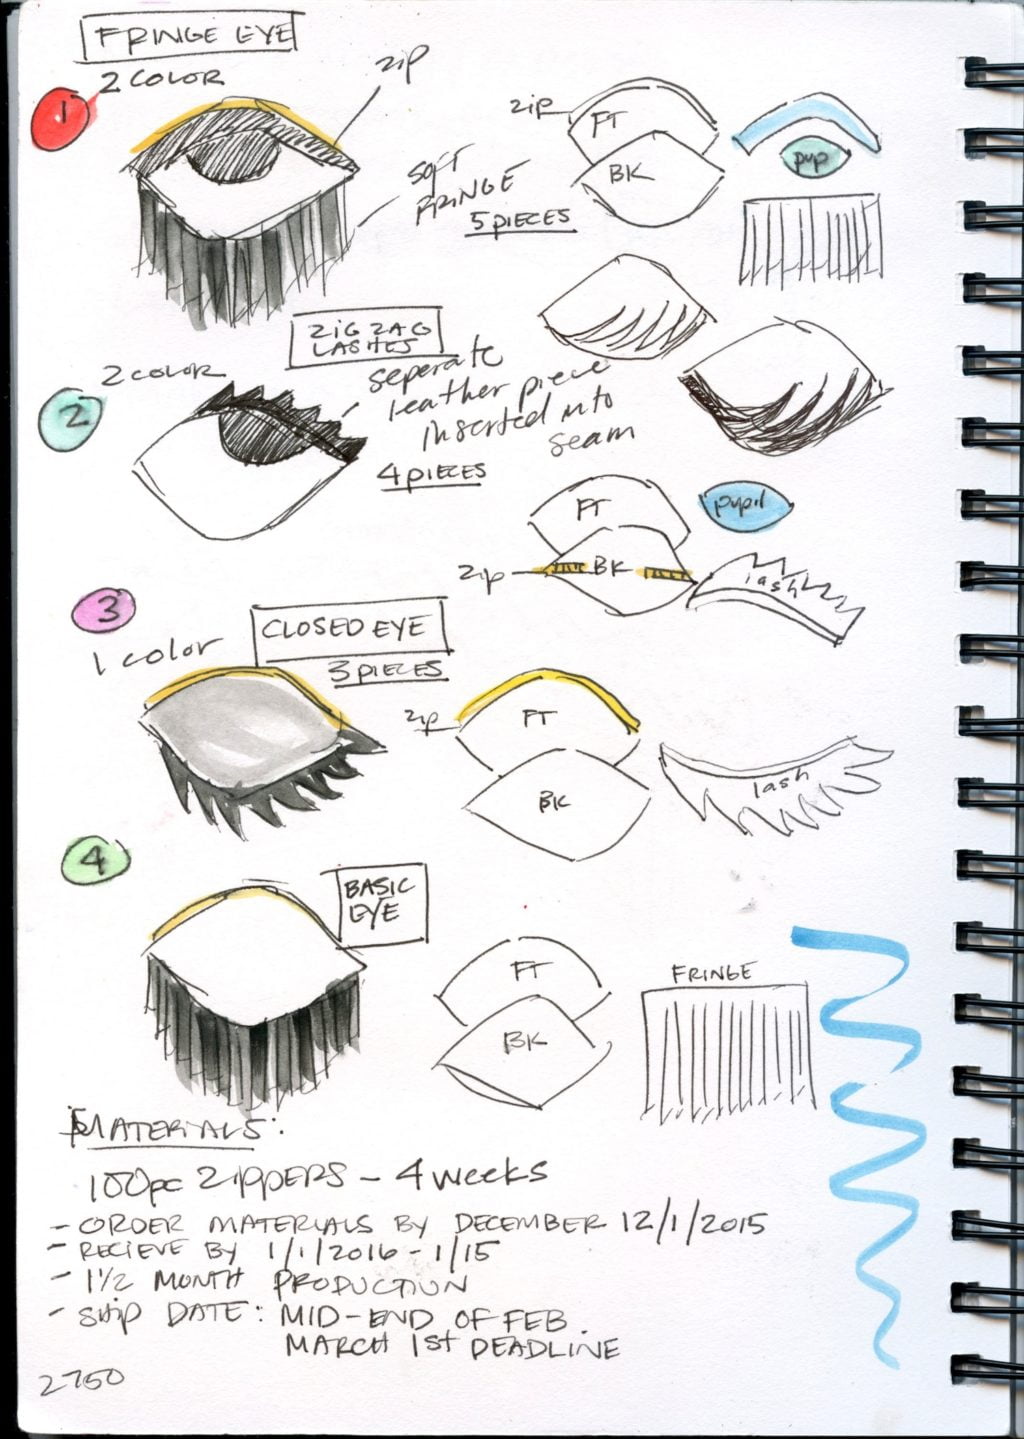 FRINGE EYE
2 COLOR
1
zip
SOFT
FRINGE
5 PIECES
zip
FT
BK
pup
ZIG ZAG
LASHES
2 COLOR
2
seperate
leather piece
inserted into
seam
4 PIECES
FT
pupil
zip
BK
lash
3
1 color
CLOSED EYE
3 PIECES
zip
FT
BK
lash
4
BASIC
EYE
FT
BK
FRINGE
MATERIALS:
100pc ZIPPERS - 4 weeks
- ORDER MATERIALS BY DECEMBER 12/1/2015
- RECIEVE BY 1/1/2016 - 1/15
- 1 1/2 MONTH PRODUCTION
- Ship DATE: MID-END OF FEB.
MARCH 1st DEADLINE
2750